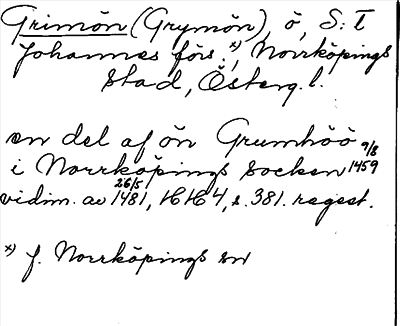 Grimön (Grymön), ö, S:t
Johannes förs.x), Norrköpings
stad, Österg. l.
en del af ön Grumhöö 9/8
i Norrköpings socken 1459
vidim. av 26/5 1481, HH4, s. 381. regest.
x) f. Norrköpings sn